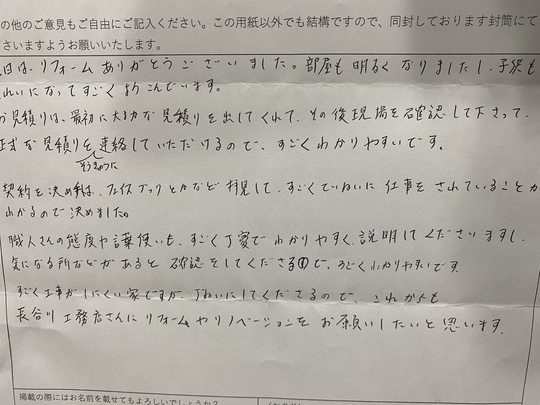 の他のご意見もご自由にご記入ください。この用紙以外でも結構ですので、同封しております封筒にて
さいますようお願いいたします。
日は、リフォームありがとうございました。部屋も明るくなりましたし、子供も
れいになってすごくよろこんでいます。
見積りは、最初に大まかな見積りを出してくれて、その後現場を確認して下さって、
正式な見積りを連絡していただけるので、すごくわかりやすいです。
契約を決め手は、フェイスブックとかなど拝見して、すごくていねいに仕事をされていることが
わかるので決めました。
職人さんの態度や言葉使いも、すごく丁寧でわかりやすく説明してくださいますし、
気になる所などがあると確認をしてくださるので、すごくわかりやすいです。
すごく工事がしにくい家ですが、ていねいにしてくださるので、これからも
長谷川工務店さんにリフォームやリノベーションをお願いしたいと思います。
掲載の際にはお名前を載せてもよろしいでしょうか？